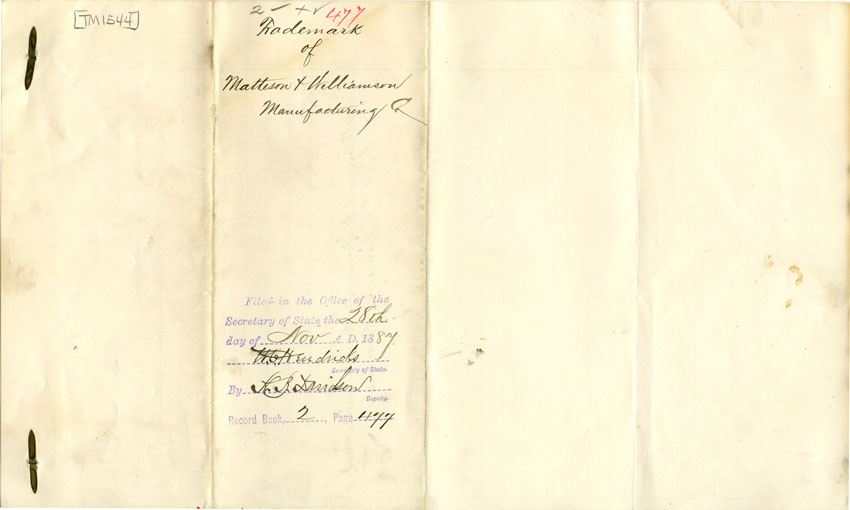 [TM1544]
2 - 477
Trademark
of
Matteson & Williamson
Manufacturing Co
Filed in the Office of the
Secretary of State the 28th
day of Nov A. D. 1887
W C Hendricks
Secretary of State.
By Davidson
Deputy.
Record Book, 2, Page 477